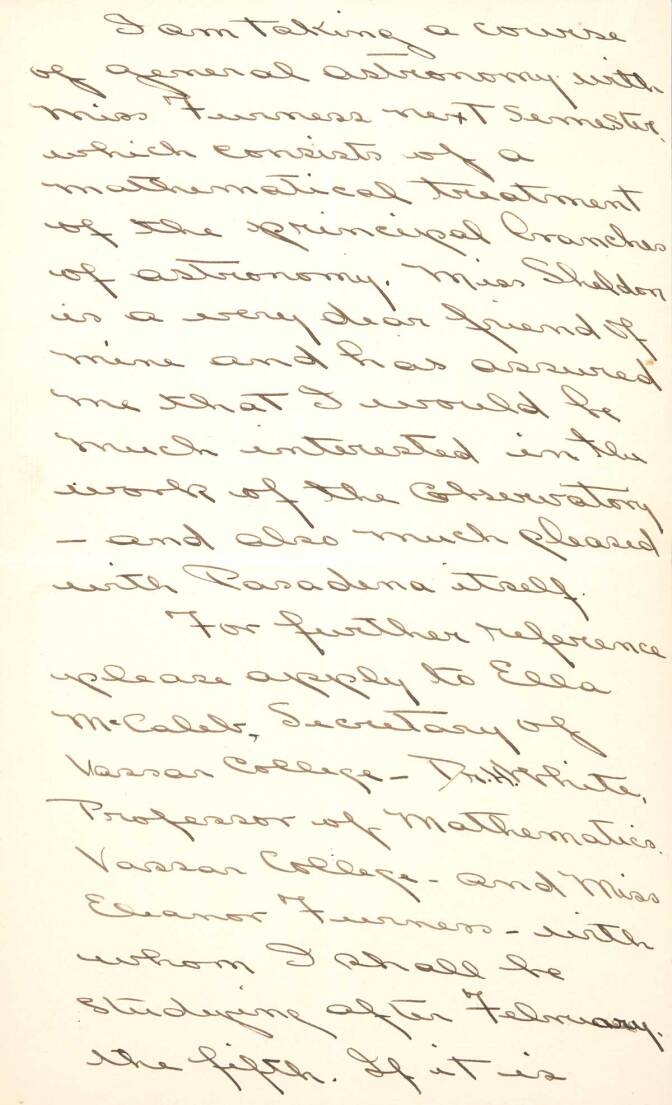 I am taking a course
of general astronomy with
Miss Furness next semester,
which consists of a
mathematical treatment
of the principal branches
of astronomy. Miss Sheldon
is a very dear friend of
mine and has assured
me that I would be
much interested in the
work of the Observatory
– and also much pleased
with Pasadena itself.
For further reference
please apply to Ella
McCaleb, Secretary of
Vassar College – Dr. H. White,
Professor of Mathematics.
Vassar College – and Miss
Eleanor Furness – with
whom I shall be
studying after February.
the fifth. If it is